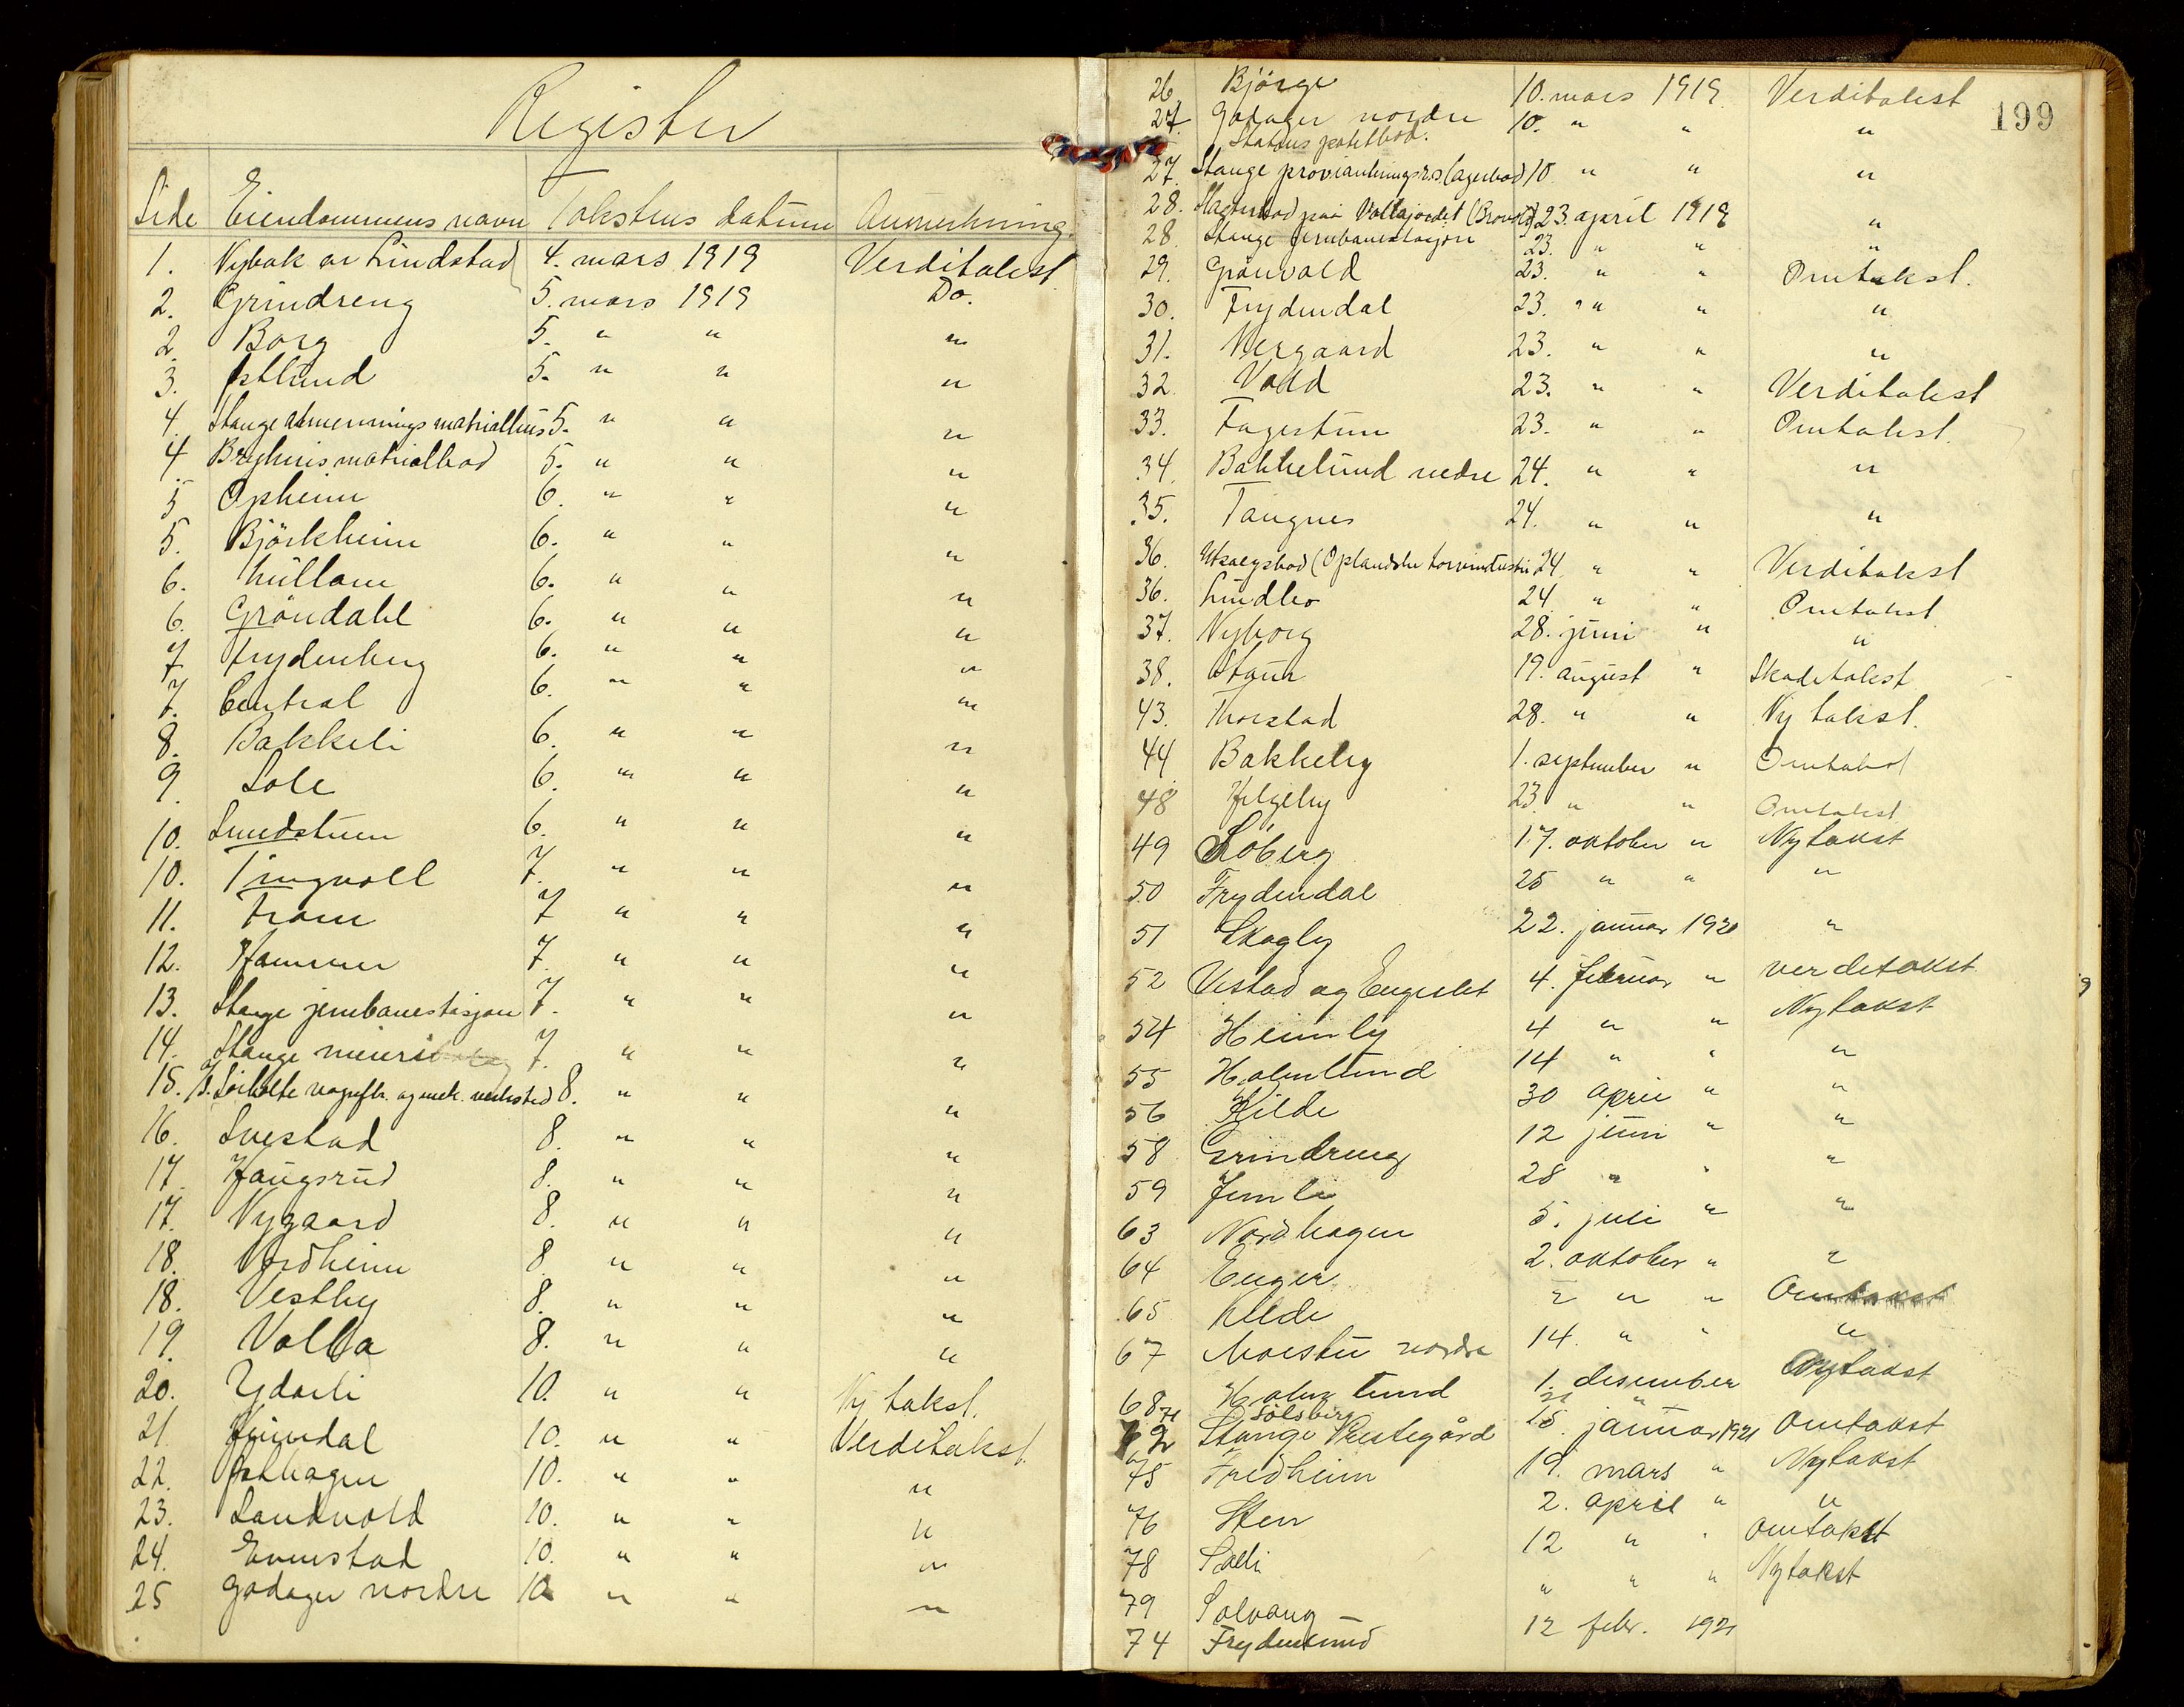 Register
Side Eiendommens navn Takstens datum Anmerkning.
1. Nybak av Lindstad 4. mars 1919 Verditakst
2. Grindreng 5. mars 1919 Do.
2. Borg 5. " " "
3. Østlund 5. " " "
4. Stange almennings matrialhus 5. " " "
4. Bryhnis matrialbod 5. " " "
5 Opheim 6. " " "
5. Björkheim 6. " " "
6. 6. " " "
6. Gröndahl 6. " " "
7 Frydenberg 6. " " "
7. Central 6. " " "
8. Bakkeli 6. " " "
9. Sole 6. " " "
10. Sundstuen 6. " " "
10. Tingvoll 7. " " "
11. Fram 7 " " "
12. Hammer 7. " " "
13. Stange jernbanestasjon 7. " " "
14. Stange meieri 7. " " "
15. verksted 8. " " "
16. Svestad 8. " " "
17. Haugsrud 8. " " "
17. Nygaard 8. " " "
18. Nordheim 8. " " "
18. Vestby 8. " " "
19. Volla 8. " " "
20. Ydarli 10. " " Ny takst.
21. 10. " " Verditakst.
22. Østhagen 10. " " "
23. Sandvold 10. " " "
24. Evenstad 10. " " "
25 Godager nordre 10 " " "
199
26. Bjørge 10. mars 1919. Verditakst
27. Godager nordre 10. " " "
Statens potetbod.
27. Stange provianteringsrs. lagerbod) 10 " " "
28. Slagterbod paa Vollajordet (Brovold) 23. april 1919 "
28. Stange jernbanestasjon 23. " " "
29. Grönvold 23. " " Omtakst.
30. Frydendal 23. " " "
31. Vergaard 23. " " "
32. Vold 23. " " Verditakst
33. Fagertun 23. " " Omtakst.
34. Bakkelund nedre 24. " " "
35. Tangnes 24. " " "
36. Utsalgsbod (Oplandske torvindustri 24 " " Verditakst
36. Lindbo 24 " " Omtakst.
37. Nyborg 28. juni " "
38. Staur 19. august " Skadetakst
43. Thorstad 28. " " Ny takst.
44 Bakkeby 1. september " Omtakst
48 Helgeby 23 " " Omtakst
49 Söberg 17. oktober " Nytakst
50 Frydendal 25 " " "
51 Skogly 22. januar 1920 "
52 Vestad og Engeslet 4. februar " verdetakst
54 Heimly 4 " " Nytakst
55 Holmlund 14 " " "
56 Kilde 30 april " "
58 Grindreng 12 juni " "
59 Jemli 28 " " "
63 Nordhagen 5. juli " "
64 Enger 2. oktober " "
65 Kilde 2 " " Omtakst
67 Moestu nordre 14. " " "
68 Holmlund 1. desember Nytakst
71 Solsberg 21 "
72 Stange Prestegård 15. januar 1921 Omtakst
75 Fredheim 19. mars " Nytakst
76 Sten 2. april " "
78 Solli 12 " " omtakst
79 Solvang " " " Nytakst
74 Frydenlund 12 febr. 1921